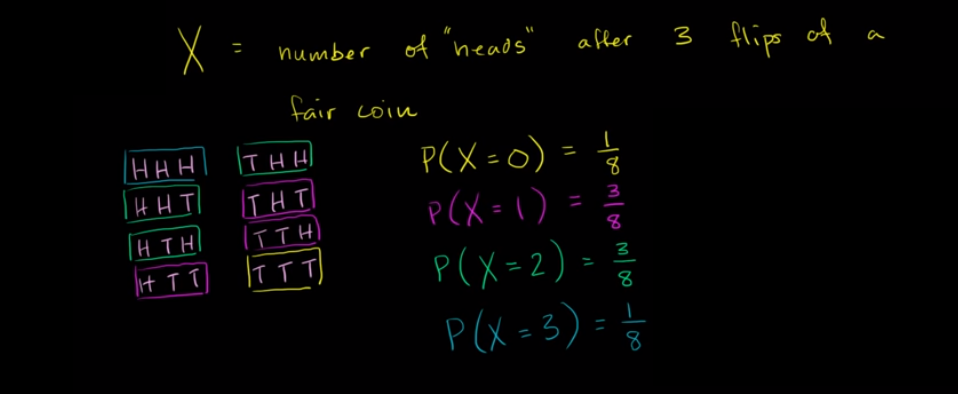 X = number of "heads" after 3 flips of a
fair coin
HHH THH
HHT THT
HTH TTH
HTT TTT
P(X=0) = 1/8
P(X=1) = 3/8
P(X=2) = 3/8
P(X=3) = 1/8